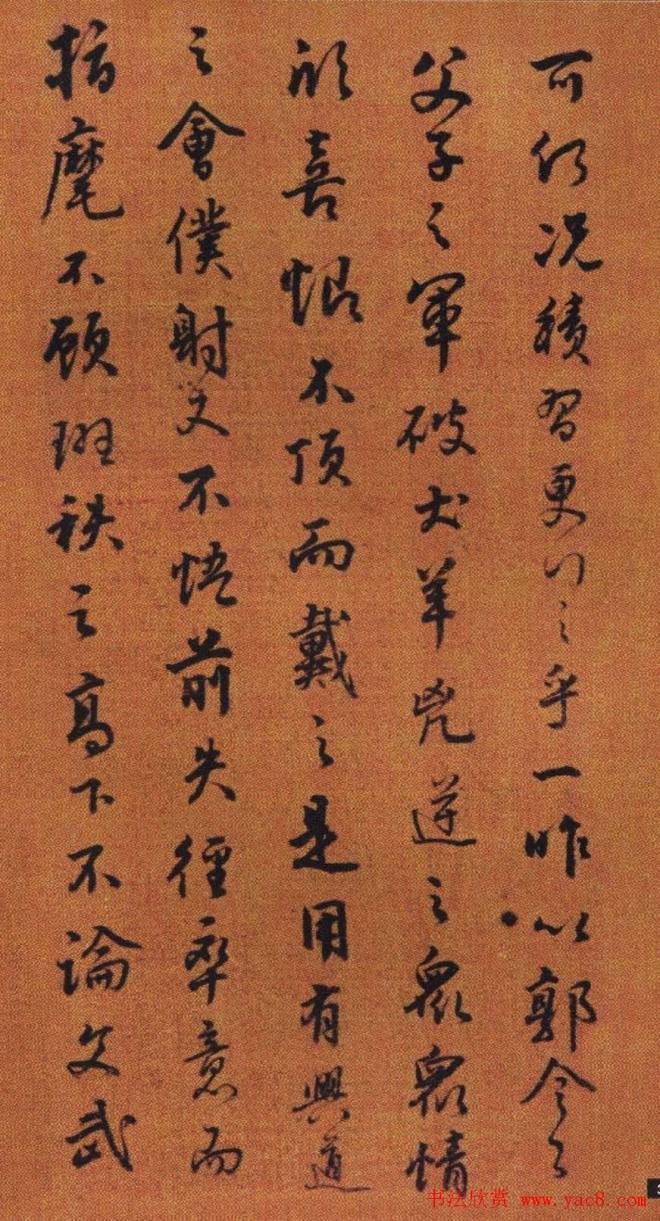 可仍況積習更行之乎一昨以郭令公
父子之軍破犬羊兇逆之衆衆情
欣喜恨不頂而戴之是用有興道
之會僕射又不悟前失徑率意而
指麾不顧班秩之高下不論文武
书法欣赏 www.yac8.com